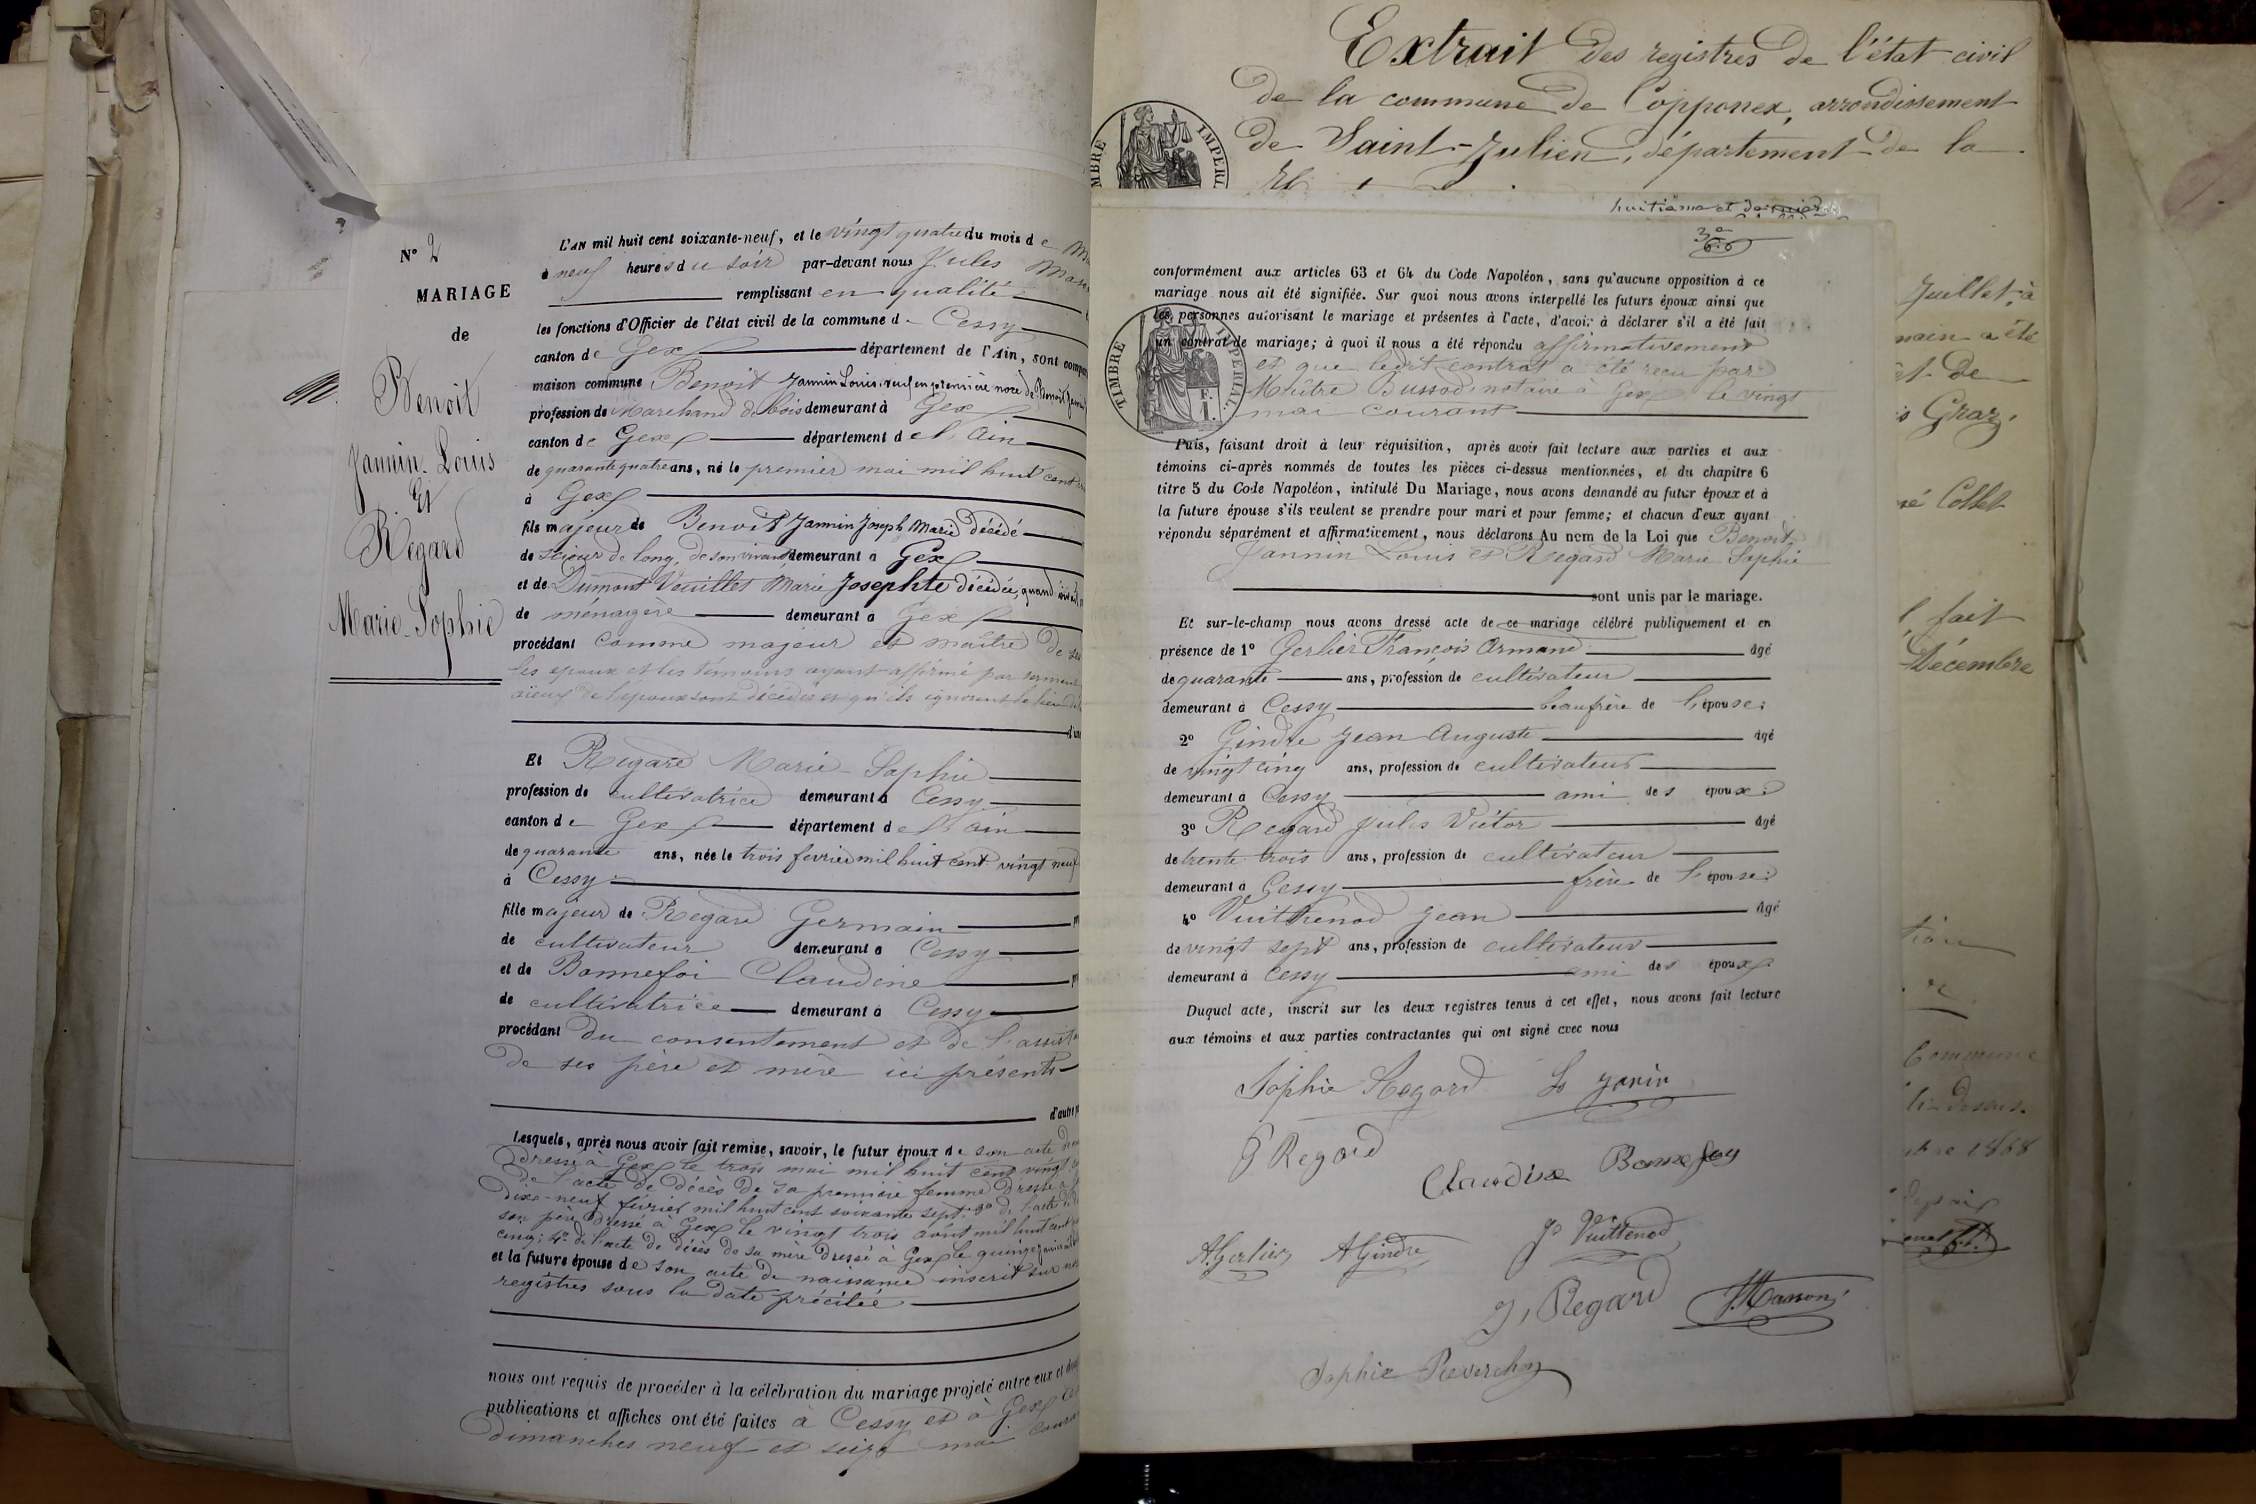 N° 2
MARIAGE
de
Benoit
Jannin-Louis
Et
Regard
Marie-Sophie
L'AN mil huit cent soixante-neuf, et le vingt quatre du mois de
à neuf heures du soir par-devant nous Jules
remplissant en qualité
les fonctions d'Officier de l'état civil de la commune d Cessy
canton de Gex département de l'Ain, sont
maison commune Benoit Jannin Louis, veuf en première noce de
profession de Marchand de bois demeurant à Gex
canton de Gex département de l'Ain
de quarante quatre ans, né le premier mai mil huit cent
à Gex
fils majeur de Benoit Jannin Joseph Marie décédé
de scieur de long, de son vivant demeurant à Gex
et de Dumont Vuillet Marie Josephte décédée, quand
de ménagère demeurant à Gex
procédant comme majeur et maître de ses
les époux et les témoins ayant affirmé par serment
aïeux de l'époux sont décédés et qu'ils ignorent le lieu
Et Regard Marie-Sophie
profession de cultivatrice demeurant à Cessy
canton de Gex département de l'Ain
de quarante ans, née le trois fevrier mil huit cent vingt neuf
à Cessy
fille majeur de Regard Germain
de cultivateur demeurant à Cessy
et de Bonnefoi Claudine
de cultivatrice demeurant à Cessy
procédant du consentement et de l'assist
de ses père et mère ici présents
d'autre
Lesquels, après nous avoir fait remise, savoir, le futur époux de son acte de
dressé à Gex le trois mai mil huit cent vingt
de l'acte de décès de sa première femme dressé à
dix-neuf février mil huit cent soixante sept; 3° de l'acte de
son père dressé à Gex le vingt trois août mil huit cent
cinq; 4° de l'acte de décès de sa mère dressé à Gex le quinze
et la future épouse de son acte de naissance inscrit sur nos
registres sous la date précitée
nous ont requis de procéder à la célébration du mariage projeté entre eux et
publications et affiches ont été faites à Cessy et à Gex
dimanches neuf et seize mai
Extrait des registres de l'état civil
de la commune de Copponex, arrondissement
de Saint-Julien, département de la
TIMBRE IMPERIAL
huitième et dernier
conformément aux articles 63 et 64 du Code Napoléon, sans qu'aucune opposition à ce
mariage nous ait été signifiée. Sur quoi nous avons interpellé les futurs époux ainsi que
les personnes autorisant le mariage et présentes à l'acte, d'avoir à déclarer s'il a été fait
un contrat de mariage; à quoi il nous a été répondu affirmativement
et que ledit contrat a été reçu par
Maître Bussod notaire à Gex le vingt
mai courant
TIMBRE IMPERIAL
F.
1.
Puis, faisant droit à leur réquisition, après avoir fait lecture aux parties et aux
témoins ci-après nommés de toutes les pièces ci-dessus mentionnées, et du chapitre 6
titre 5 du Code Napoléon, intitulé Du Mariage, nous avons demandé au futur époux et à
la future épouse s'ils veulent se prendre pour mari et pour femme; et chacun d'eux ayant
répondu séparément et affirmativement, nous déclarons Au nom de la Loi que Benoit
Jannin Louis et Regard Marie Sophie
sont unis par le mariage.
Et sur-le-champ nous avons dressé acte de ce mariage célébré publiquement et en
présence de 1° Gerlier François Armand âgé
de quarante ans, profession de cultivateur
demeurant à Cessy beaufrère de l'épouse;
2° Gindre Jean Auguste âgé
de vingt cinq ans, profession de cultivateur
demeurant à Cessy ami des époux;
3° Regard Jules Victor âgé
de trente trois ans, profession de cultivateur
demeurant à Cessy frère de l'épouse;
4° Vuittenod Jean âgé
de vingt sept ans, profession de cultivateur
demeurant à Cessy ami des époux
Duquel acte, inscrit sur les deux registres tenus à cet effet, nous avons fait lecture
aux témoins et aux parties contractantes qui ont signé avec nous
Sophie Regard Ls Janin
G Regard
Claudine Bonnefoy
A. Gerlier A Gindre Jn Vuittenod
J, Regard
Sophie Reverchon
Juillet, à
Graz,
Collet
fait
Décembre
Commune
ci-dessus.
1868